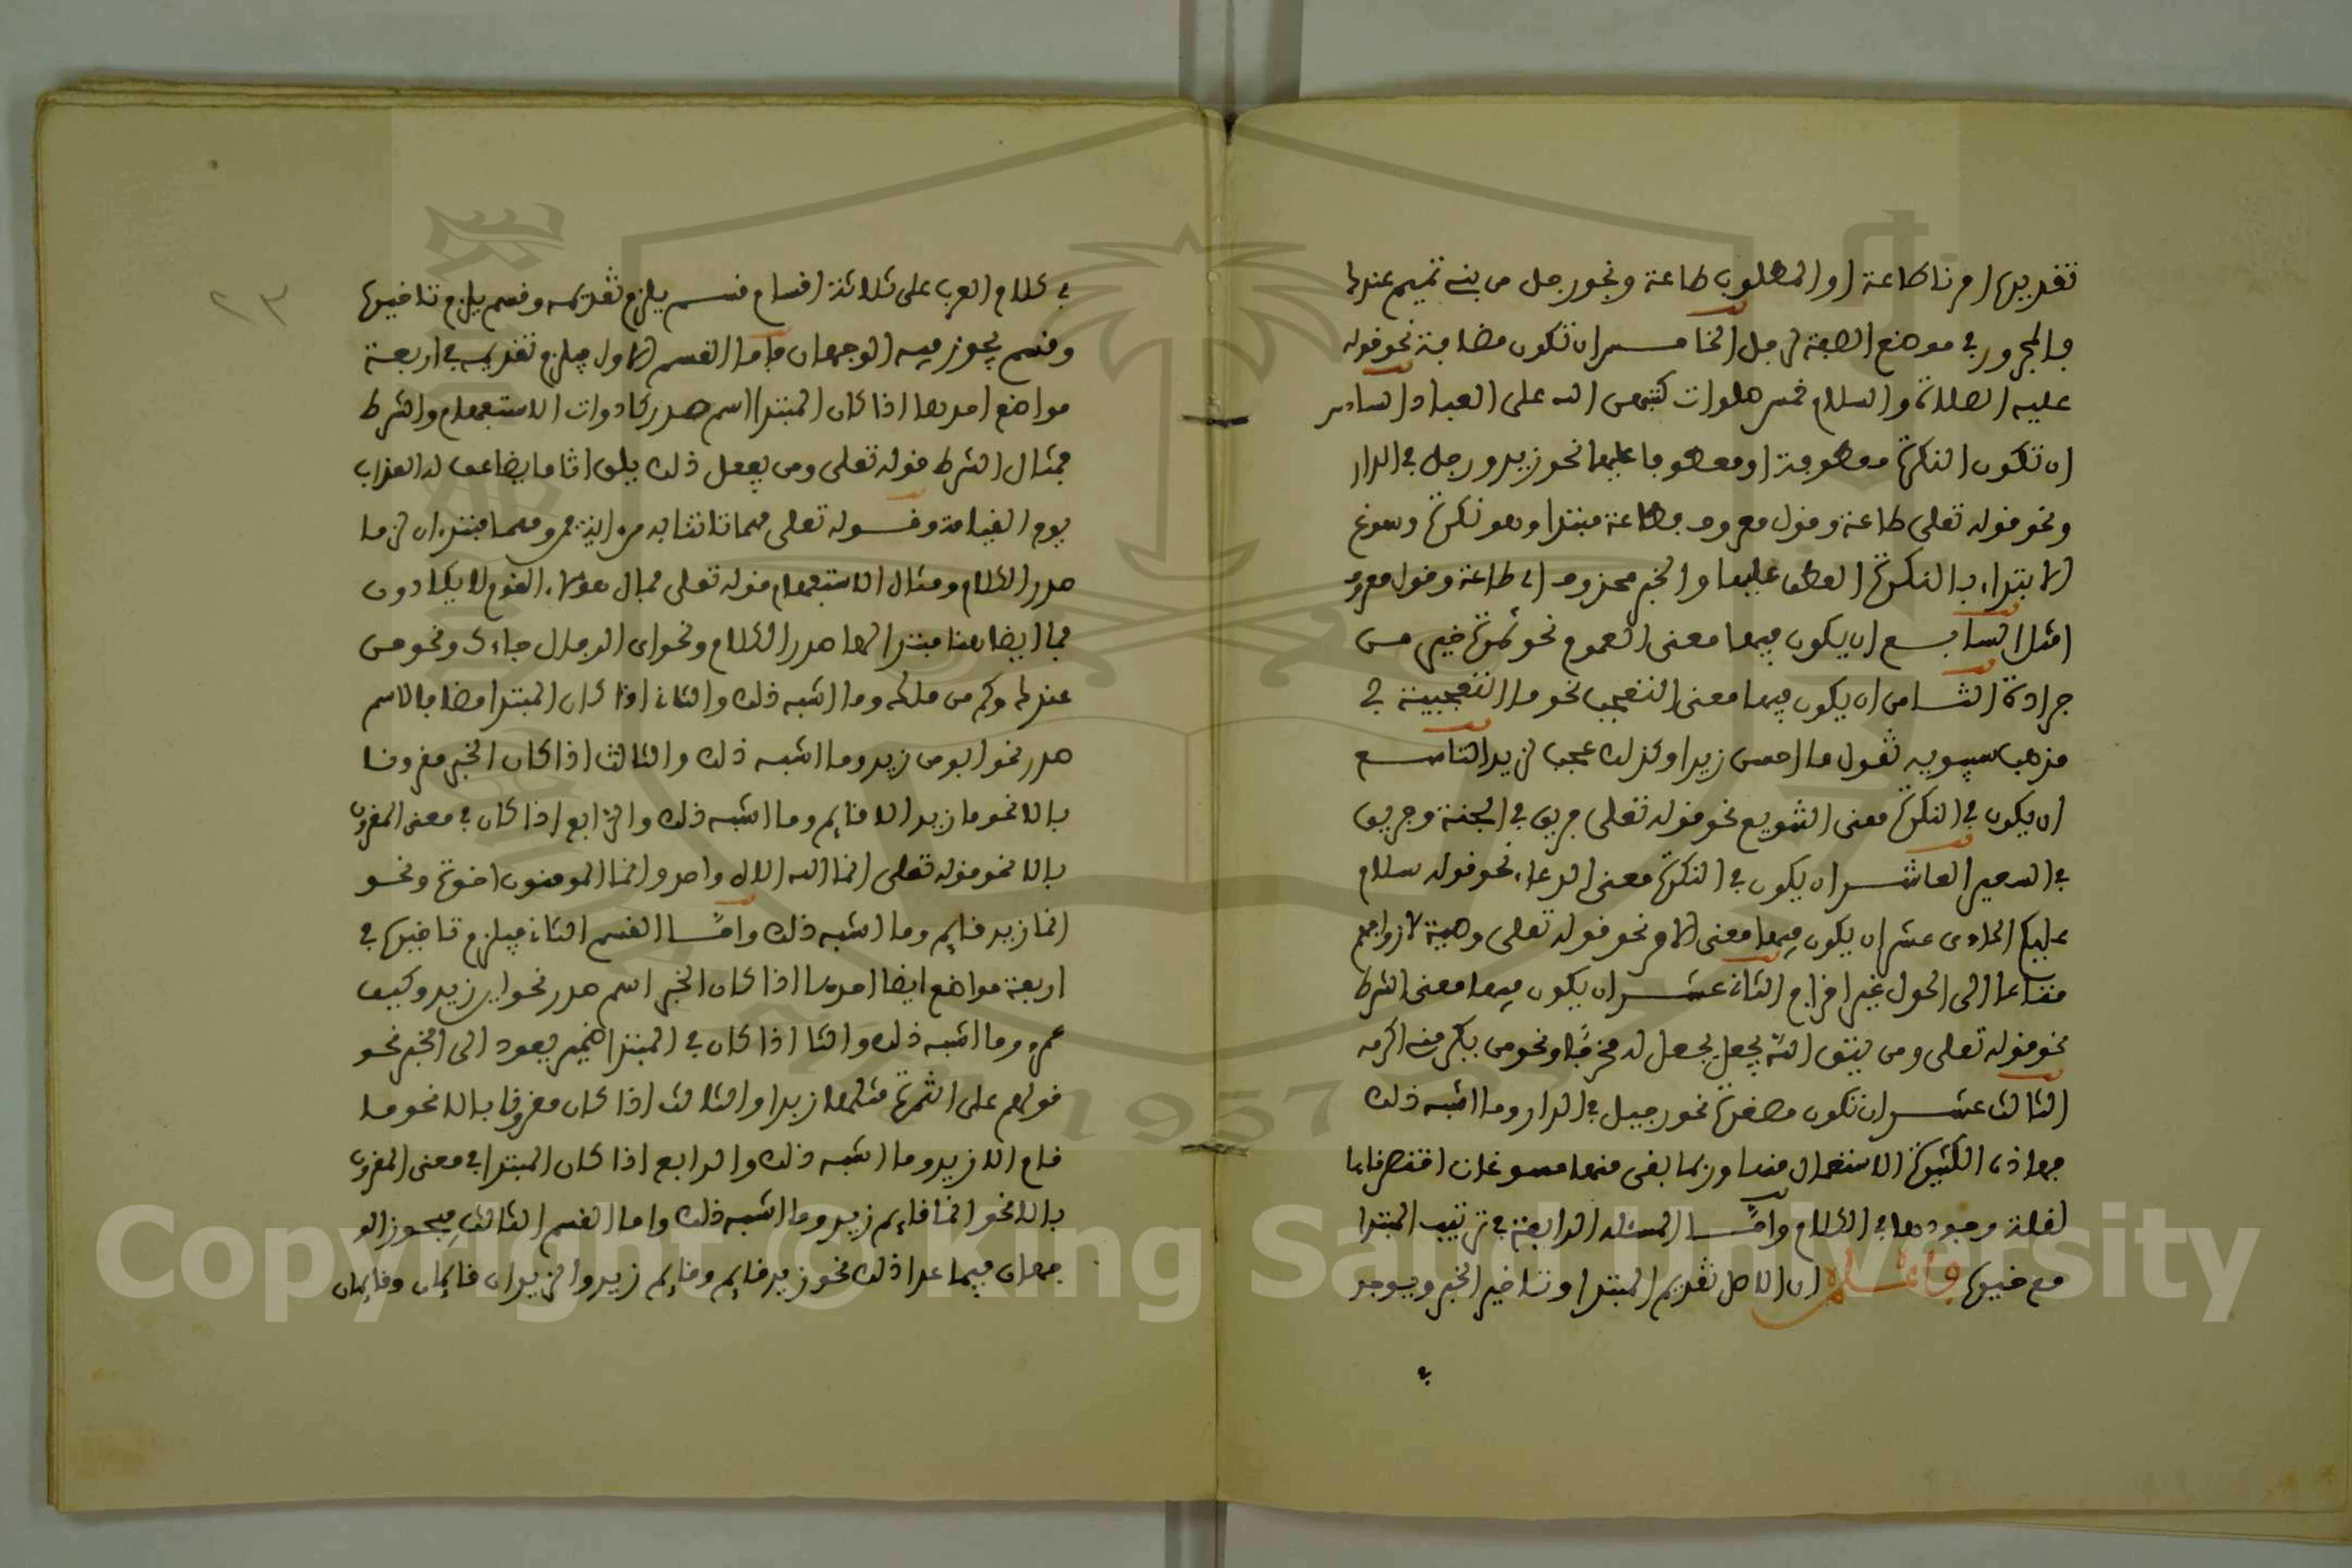 تقديرها امرنا طاعة او المطلوب طاعة ونحو رجل من بني تميم عندنا
فالمجرور في موضع الصفة لرجل الخامس ان تكون مضافة نحو قوله
عليه الصلاة والسلام خمس صلوات كتبهن الله على العباد السادس
ان تكون النكرة معطوفة او معطوفا عليها نحو زيد ورجل في الدار
ونحو قوله تعلى طاعة وقول معروف فطاعة مبتدا وهو نكرة وسوغ
الابتداء بالنكرة العطف عليها والخبر محذوف اي طاعة وقول معروف
امثل السابع ان يكون فيها معنى العموم نحو ثمرة خير من
جرادة الثامن ان يكون فيها معنى التعجب نحو ما التعجبية في
مذهب سيبويه تقول ما احسن زيدا وكذلك عجب لزيد التاسع
ان يكون في النكرة معنى التنويع نحو قوله تعلى فريق في الجنة وفريق
في السعير العاشر ان يكون في النكرة معنى الدعاء نحو قوله سلام
عليكم الحادى عشر ان يكون فيها معنى الامر نحو قوله تعلى وصية لازواجهم
متاعا الى الحول غير اخراج الثاني عشر ان يكون فيها معنى الشرط
نحو قوله تعلى ومن يتق الله يجعل يجعل له مخرجا ونحو من يكرمني اكرمه
الثالث عشر ان تكون مصغرة نحو رجيل في الدار وما اشبه ذلك
فهاذه الكثيرة الاستعمال منها وربما بقى منها مسوغات اقتصرنا عنها
لقلة وجودها في الكلام واما المسئلة الرابعة في ترتيب المبتدا
مع خبرها فاعلم ان الاصل تقديم المبتدا وتاخير الخبر ويوجد
في
٢٣
في كلام العرب على ثلاثة اقسام قسم يلزم تقديمه وقسم يلزم تاخيرها
وقسم يجوز فيه الوجهان فاما القسم الاول فيلزم تقديمه في اربعة
مواضع احدها اذا كان المبتدا اسم صدر كادوات الاستفهام والشرط
فمثال الشرط قوله تعلى ومن يفعل ذلك يلق اثاما يضاعف له العذاب
يوم القيامة وقوله تعلى مهما تاتنا به من اية فمن ومهما مبتدءان لزما
صدر الكلام ومثال الاستفهام قوله تعلى فمال هؤلاء القوم لا يكادون
فما ايضا هنا مبتدا لها صدر الكلام ونحو اى الرجال جاءك ونحو من
عندك وكم من ملك وما اشبه ذلك والثاني اذا كان المبتدا مضافا لاسم
صدر نحو ابو من زيد وما اشبه ذلك والثالث اذا كان الخبر مقرونا
بالا نحو ما زيد الا قايم وما اشبه ذلك والرابع اذا كان في معنى المقرون
بالا نحو قوله تعلى انما الله الاه واحد وانما المومنون اخوة ونحو
انما زيد قايم وما اشبه ذلك واما القسم الثاني فيلزم تاخيرها في
اربعة مواضع ايضا احدها اذا كان الخبر اسم صدر نحو اين زيد وكيف
عمرو وما اشبه ذلك والثا اذا كان في المبتدا ضمير يعود الى الخبر نحو
قولهم على الثمرة مثلها زبدا والثالث اذا كان مقرونا بالا نحو ما
قام الا زيد وما اشبه ذلك والرابع اذا كان المبتدا في معنى المقرون
بالا نحو انما قايم زيد وما اشبه ذلك واما القسم الثالث فيجوز الو
جهان فيما عدا ذلك نحو زيد قايم وقايم زيد والزيدان قايمان وقايمان
Copyright © King Saud University
1957